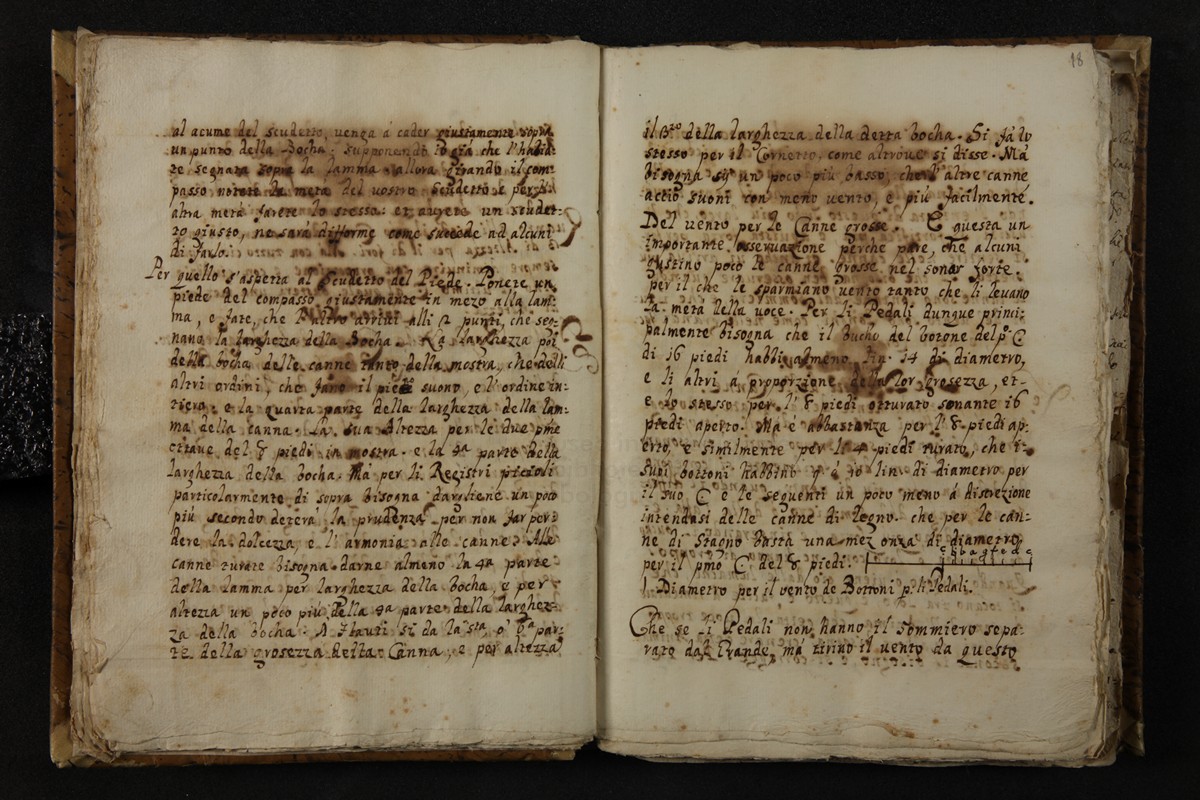 al acume del scudetto, venga á cader giustamente sopra
un punto della Bocha. supponendo io giá che l'habia:
te segnata sopra la lamma. allora girando il com:
passo notete la metá del vostro scudetto. e per l'
altra metá farete lo stesso. et avrete un scudet:
to giusto, ne sará difforme come succede ad alcuni
di farlo.
Per quello s'aspetta al scudetto del Piede. Ponete un
piede del compasso giustamente in mezo alla lam:
ma, e fate, che l'altro arrivi alli 2 punti, che seg:
nano la larghezza della Bocha. La larghezza poi
della bocha delle canne tanto della mostra, che delli
altri ordini, che fano il pieno suono, e l'ordine in:
tiero. e la quarta parte della larghezza della lam:
ma della canna. La sua Altezza per le due pme
ottave del 8 piedi in mostra. e la 4ª parte della
larghezza della bocha. Ma per li Registri piccioli
particolarmente di sopra bisogna dargliene un poco
piú secondo deterá la prudenza per non far per:
dere la dolcezza, e l'armonia alle canne. Alle
canne turate bisogna darne almeno la 4ª parte
della lamma per larghezza della bocha, e per
altezza un poco piú della 4ª parte della larghez:
za della bocha. A Flauti si da la 5ta, o 6ª par:
te della grosezza della Canna, e per altezza
18
il 3zo della larghezza della detta bocha. Si fa lo
stesso per il Cornetto, come altrove si disse. Má
bisogna sij un poco piú basso, che l'altre canne
actió suoni con meno vento, e piú facilmente.
Del vento per le Canne grosse. E questa un
importante osservazione perche pare, che alcuni
gustino poco le canne grosse nel sonar forte.
per il che le sparmiano vento tanto che li levano
la metá della voce. Per li Pedali dunque princi:
palmente bisogna che il bucho del botone del po C
di 16 piedi habbi almeno lin. 14 di diametro,
e li altri á proporzione della lor grosezza, et
e lo stesso per l'8 piedi otturato sonante 16
piedi aperto. Ma é abbastanza per l'8 piedi ap:
erto, e similmente per li 4 piedi turato, che i
suoi bottoni habbino 9 é 10 lin. di diametro per
il suo C e le sequenti un poco meno á discrezione
intendasi delle canne di legno. che per le can:
ne di stagno basta una mez onza di diametro
per il pmo C del 8 piedi.
c h b a g f e d c
1. Diametro per il vento de Bottoni p. li Pedali.
Che se li Pedali non hanno il sommiero sepa:
rato dal Grande, ma tirino il vento da questo